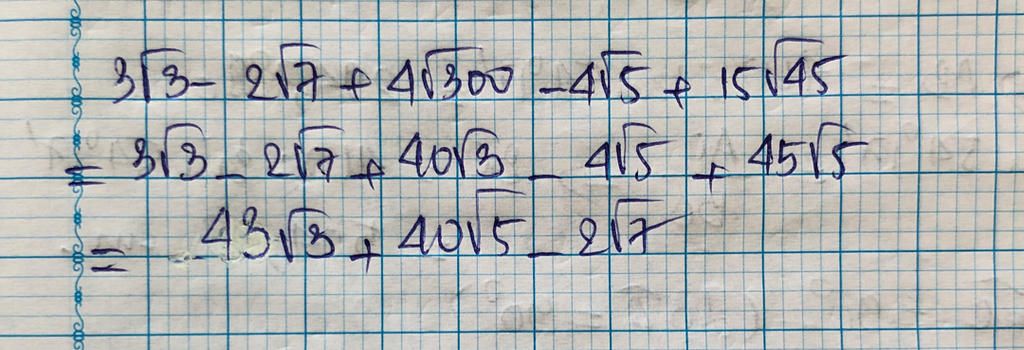 3√3 - 2√7 + 4√300 - 4√5 + 15√45
= 3√3 - 2√7 + 40√3 - 4√5 + 45√5
= 43√3 + 40√5 - 2√7